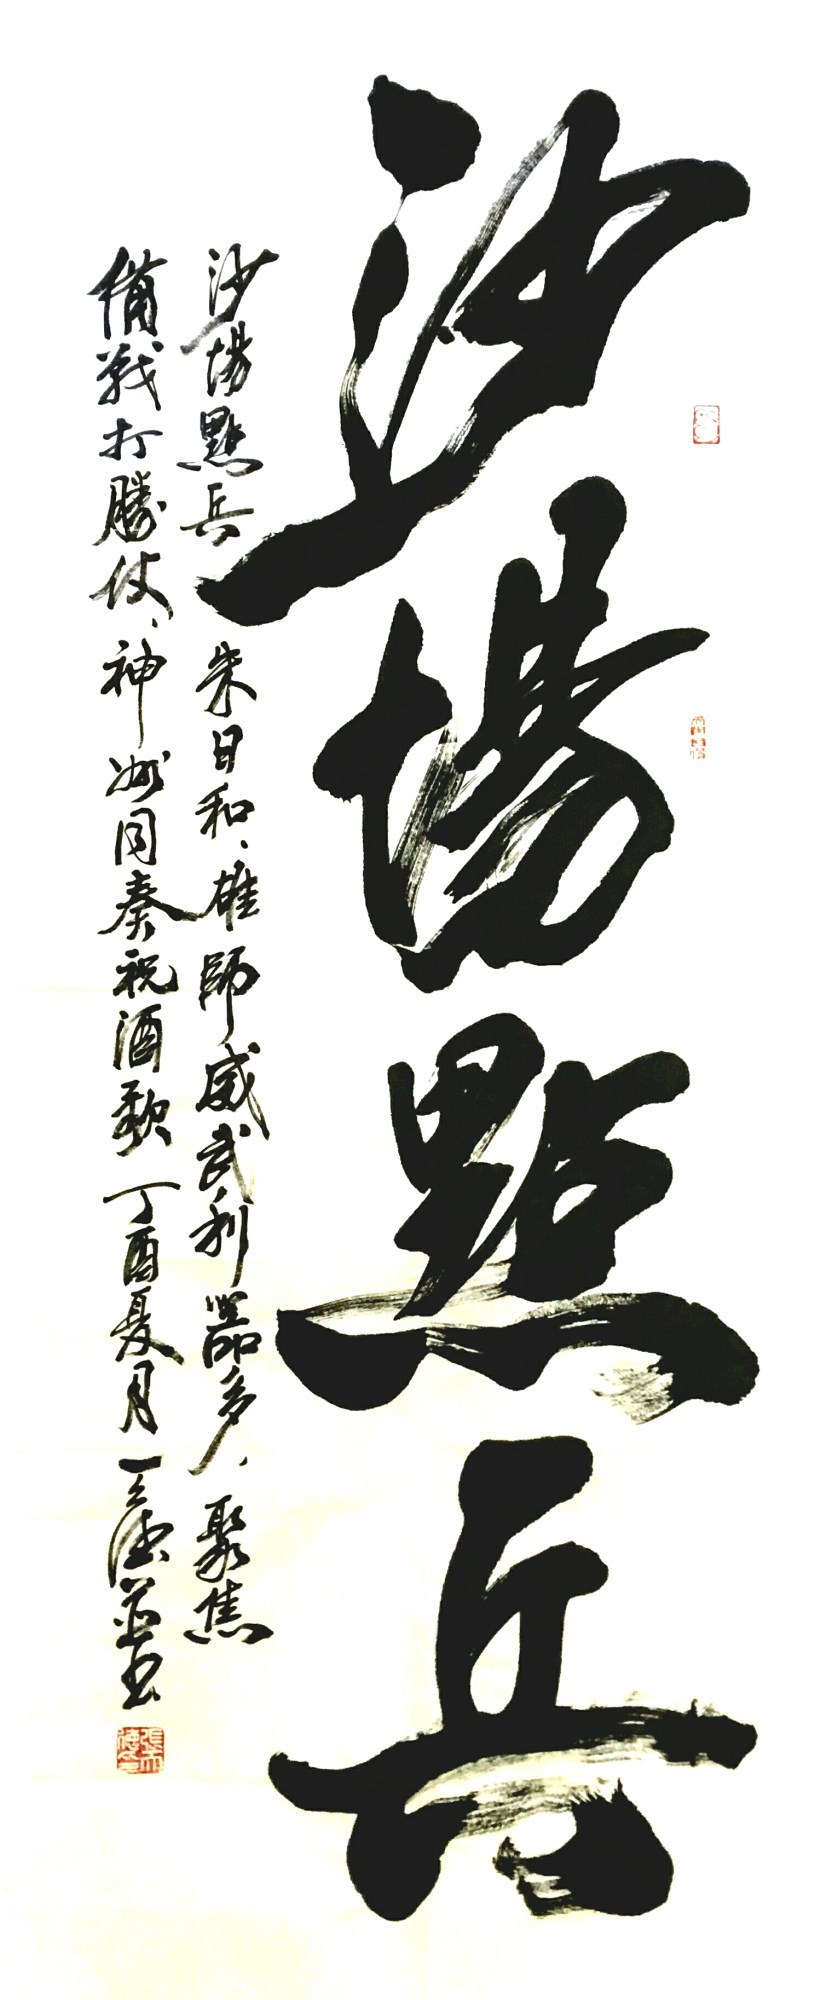 沙場點兵
沙場點兵 朱日和、雄師威武利器多、聚焦
備戰打勝仗、神州同奏祝酒歌 丁酉夏月